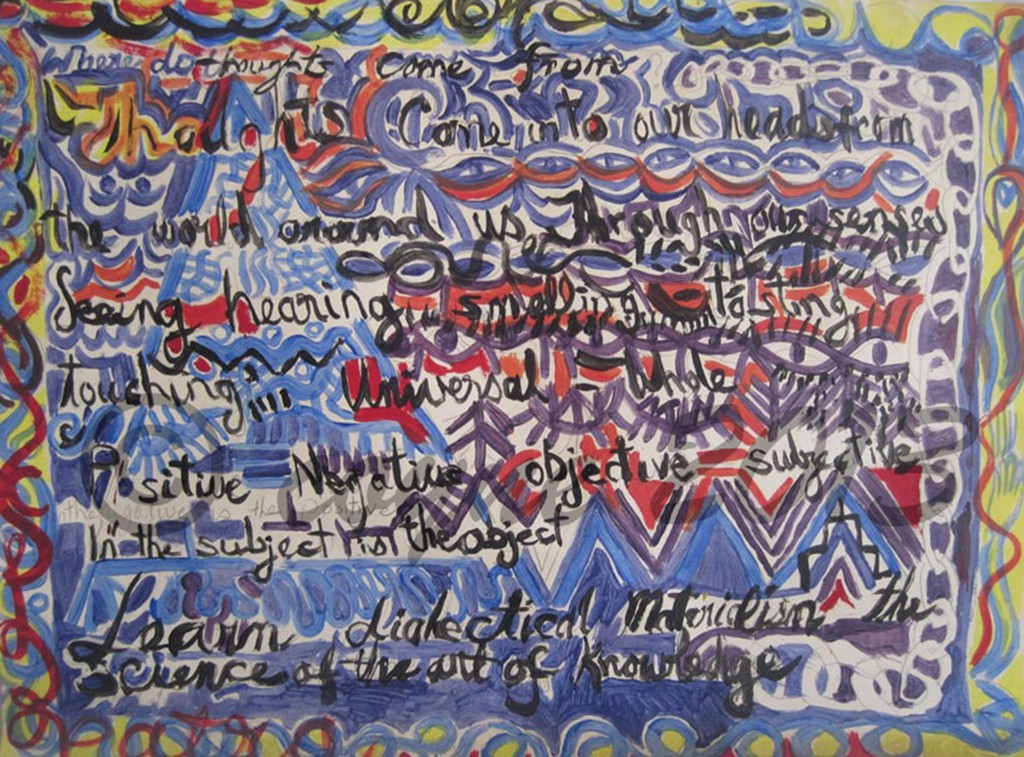 Where do thoughts come from
Thoughts Come into our heads from
the world around us Through our senses
Seeing hearing smelling tasting
touching Universal - Whole
Positive Negative objective subjective
the negative is the positive
In the subject is the object
Learn dialectical Materialism the
Science of the art of Knowledge